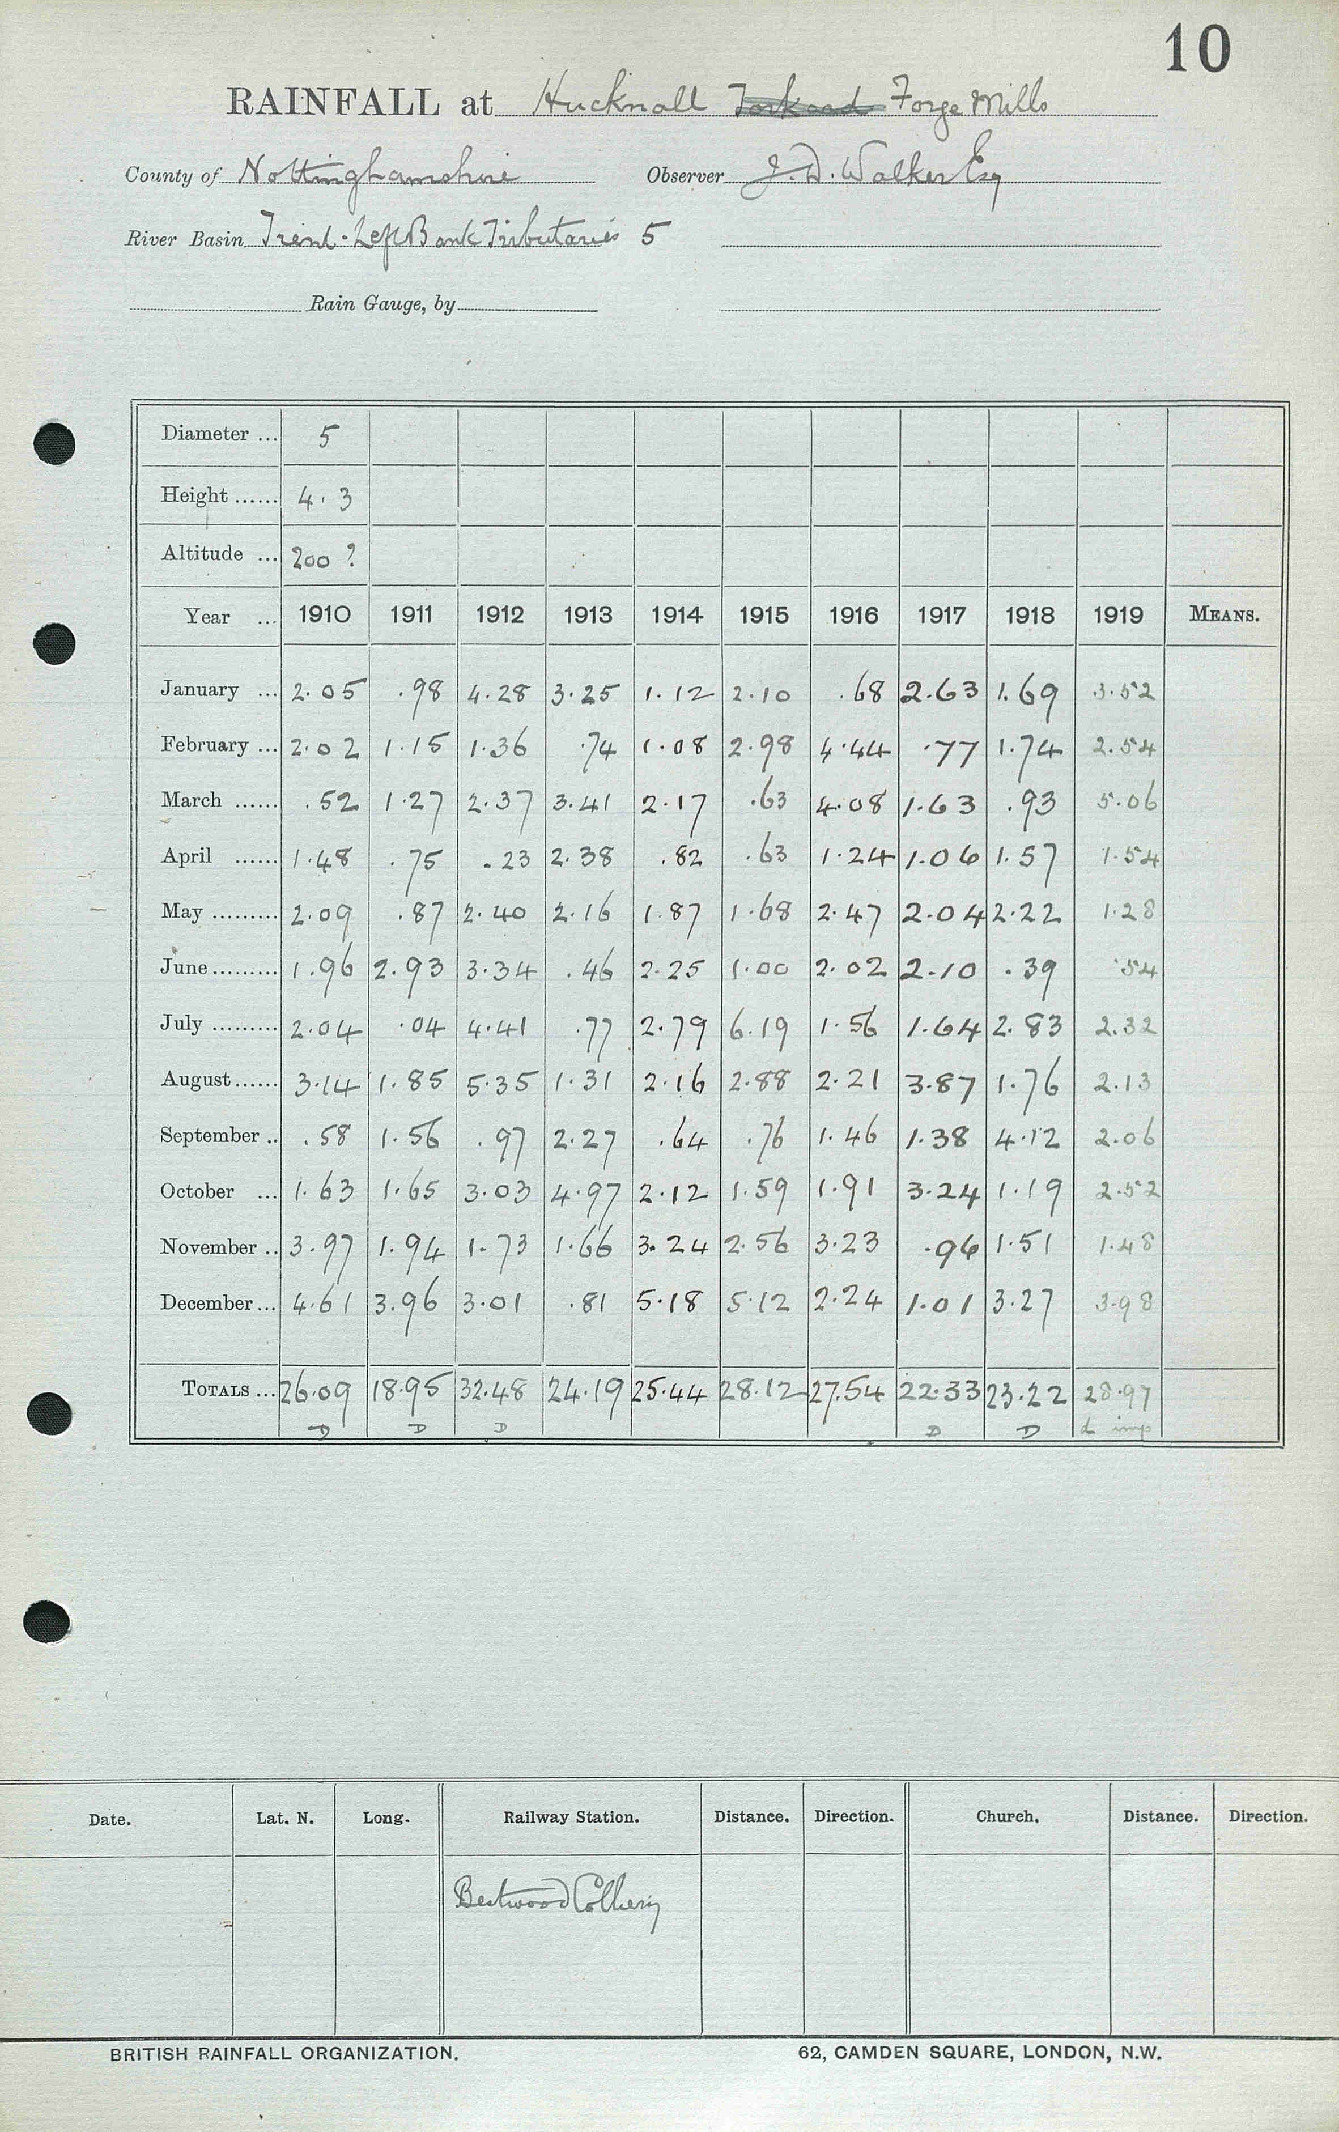 10
RAINFALL at Hucknall Torkard Forge Mills
County of Nottinghamshire Observer J. D. Walker Esq
River Basin Trent. Left Bank Tributaries 5
Rain Gauge, by
Diameter ... 5
Height ...... 4.3
Altitude ... 200 ?
Year ... 1910 1911 1912 1913 1914 1915 1916 1917 1918 1919 MEANS.
January ... 2.05 .98 4.28 3.25 1.12 2.10 .68 2.63 1.69 3.52
February ... 2.02 1.15 1.36 .74 1.08 2.98 4.44 .77 1.74 2.54
March ...... .52 1.27 2.37 3.41 2.17 .63 4.08 1.63 .93 5.06
April ...... 1.48 .75 .23 2.38 .82 .63 1.24 1.06 1.57 1.54
May ......... 2.09 .87 2.40 2.16 1.87 1.68 2.47 2.04 2.22 1.28
June ......... 1.96 2.93 3.34 .46 2.25 1.00 2.02 2.10 .39 .54
July ......... 2.04 .04 4.41 .77 2.79 6.19 1.56 1.64 2.83 2.32
August ...... 3.14 1.85 5.35 1.31 2.16 2.88 2.21 3.87 1.76 2.13
September .. .58 1.56 .97 2.27 .64 .76 1.46 1.38 4.12 2.06
October ... 1.63 1.65 3.03 4.97 2.12 1.59 1.91 3.24 1.19 2.52
November .. 3.97 1.94 1.73 1.66 3.24 2.56 3.23 .96 1.51 1.48
December ... 4.61 3.96 3.01 .81 5.18 5.12 2.24 1.01 3.27 3.98
TOTALS ... 26.09 18.95 32.48 24.19 25.44 28.12 27.54 22.33 23.22 28.97
D D D D D d imp
Date. Lat. N. Long. Railway Station. Distance. Direction. Church. Distance. Direction.
Bestwood Colliery
BRITISH RAINFALL ORGANIZATION. 62, CAMDEN SQUARE, LONDON, N.W.